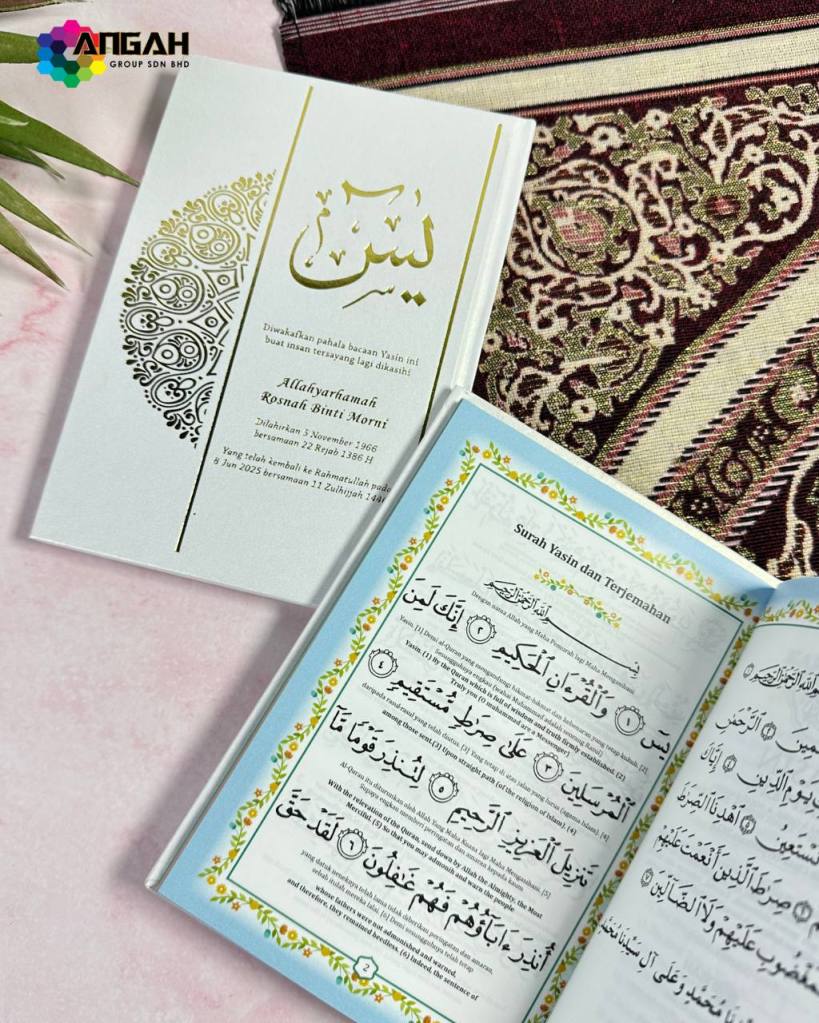 ANGAH
GROUP SDN BHD
يس
Diwakafkan pahala bacaan Yasin ini
buat insan tersayang lagi dikasihi
Allahyarhamah
Rosnah Binti Morni
Dilahirkan 5 November 1966
bersamaan 22 Rejab 1386 H
Yang telah kembali ke Rahmatullah pada
8 Jun 2025 bersamaan 11 Zulhijjah 144
Surah Yasin dan Terjemahan
بِسْمِ اللَّهِ الرَّحْمَٰنِ الرَّحِيمِ
Dengan nama Allah yang Maha Pemurah lagi Maha Mengasihani
يسٓ ١ وَالْقُرْءَانِ الْحَكِيمِ ٢ إِنَّكَ لَمِنَ
Yasin. [1] Demi al-Quran yang mengandungi hikmat-hikmat dan kebenaran yang tetap kukuh. [2]
Sesungguhnya engkau (wahai Muhammad adalah seorang Rasul)
Yasin. (1) By the Quran which is full of wisdom and truth firmly established. (2)
Truly you (O muhammad are a Messenger)
الْمُرْسَلِينَ ٣ عَلَىٰ صِرَٰطٍ مُّسْتَقِيمٍ ٤
daripada rasul-rasul yang telah diutus. [3] Yang tetap di atas jalan yang lurus (agama Islam). [4]
among those sent.(3) Upon straight path (of the religion of Islam). (4)
تَنزِيلَ الْعَزِيزِ الرَّحِيمِ ٥ لِتُنذِرَ قَوْمًا مَّآ
Al-Quran itu diturunkan oleh Allah Yang Maha Kuasa lagi Maha Mengasihani. [5]
Supaya engkau memberi peringatan dan amaran kepada kaum
With the relevation of the Quran, send down by Allah the Almighty, the Most
Merciful. (5) So that you may admonish and warn the people
أُنذِرَ ءَابَآؤُهُمْ فَهُمْ غَٰفِلُونَ ٦ لَقَدْ حَقَّ
yang datuk neneknya telah lama tidak diberikan peringatan dan amaran,
sebab itulah mereka lalai. [6] Demi sesungguhnya telah tetap
whose fathers were not admonished and warned,
and therefore, they remained heedless. (6) Indeed, the sentence of
2
الرَّحْمَٰنِ
يَوْمِ الدِّينِ ٤ إِيَّاكَ
اهْدِنَا الصِّرَٰطَ
صِرَٰطَ الَّذِينَ أَنْعَمْتَ عَلَيْهِمْ
عَلَيْهِمْ وَلَا الضَّآلِّينَ ٧
وَعَلَىٰ آلِ سَيِّدِنَا مُحَمَّدٍ